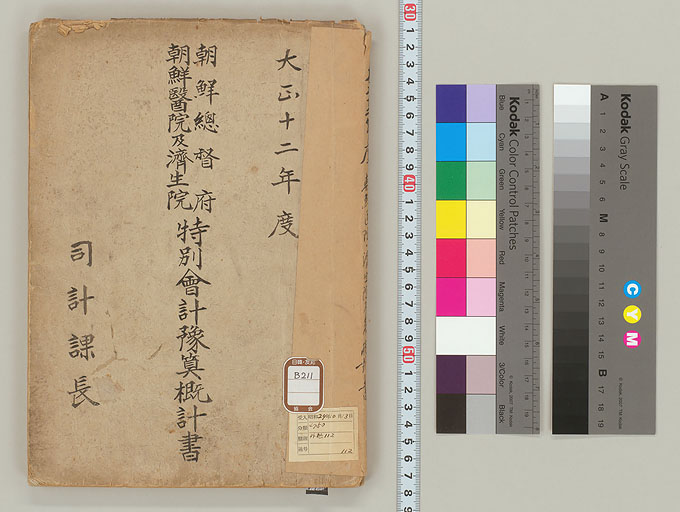 大正十二年度
朝鮮總督府
朝鮮醫院及濟生院
特別會計豫算概計書
司計課長
B211
112
Kodak Color Control Patches
Blue
Cyan
Green
Yellow
Red
Magenta
White
3/Color
Black
Kodak Gray Scale
A 1 2 3 4 5 6 M 8 9 10 11 12 13 14 15 B 17 18 19
C
Y
M
30 1 2 3 4 5 6 7 8 9 40 1 2 3 4 5 6 7 8 9 50 1 2 3 4 5 6 7 8 9